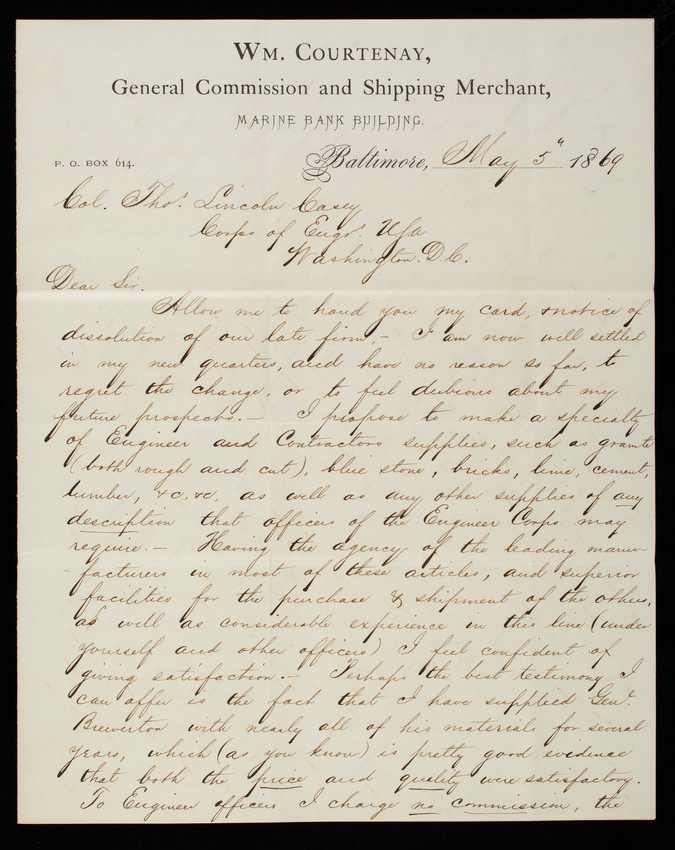 WM. COURTENAY,
General Commission and Shipping Merchant,
MARINE BANK BUILDING.
P. O. BOX 614.
Baltimore, May 5" 1869
Col. Thos. Lincoln Casey
Corps of Engrs. USA
Washington. D.C.
Dear Sir.
Allow me to hand you my card, & notice of
dissolution of our late firm, - I am now well settled
in my new quarters, and have no reason so far, to
regret the change, or to feel dubious about my
future prospects. - I propose to make a specialty
of Engineer and Contractors supplies, such as granite
(both rough and cut), blue stone, bricks, lime, cement,
lumber, &c, &c, as well as any other supplies of any
description that officers of the Engineer Corps may
require. - Having the agency of the leading manu-
facturers in most of these articles, and superior
facilities for the purchase & shipment of the others,
as well as considerable experience in this line (under
yourself and other officers) I feel confident of
giving satisfaction. - Perhaps the best testimony I
can offer is the fact that I have supplied Genl.
Brewerton with nearly all of his materials for several
years, which (as you know) is pretty good evidence
that both the price and quality were satisfactory.
To Engineer officers I charge no commission, the